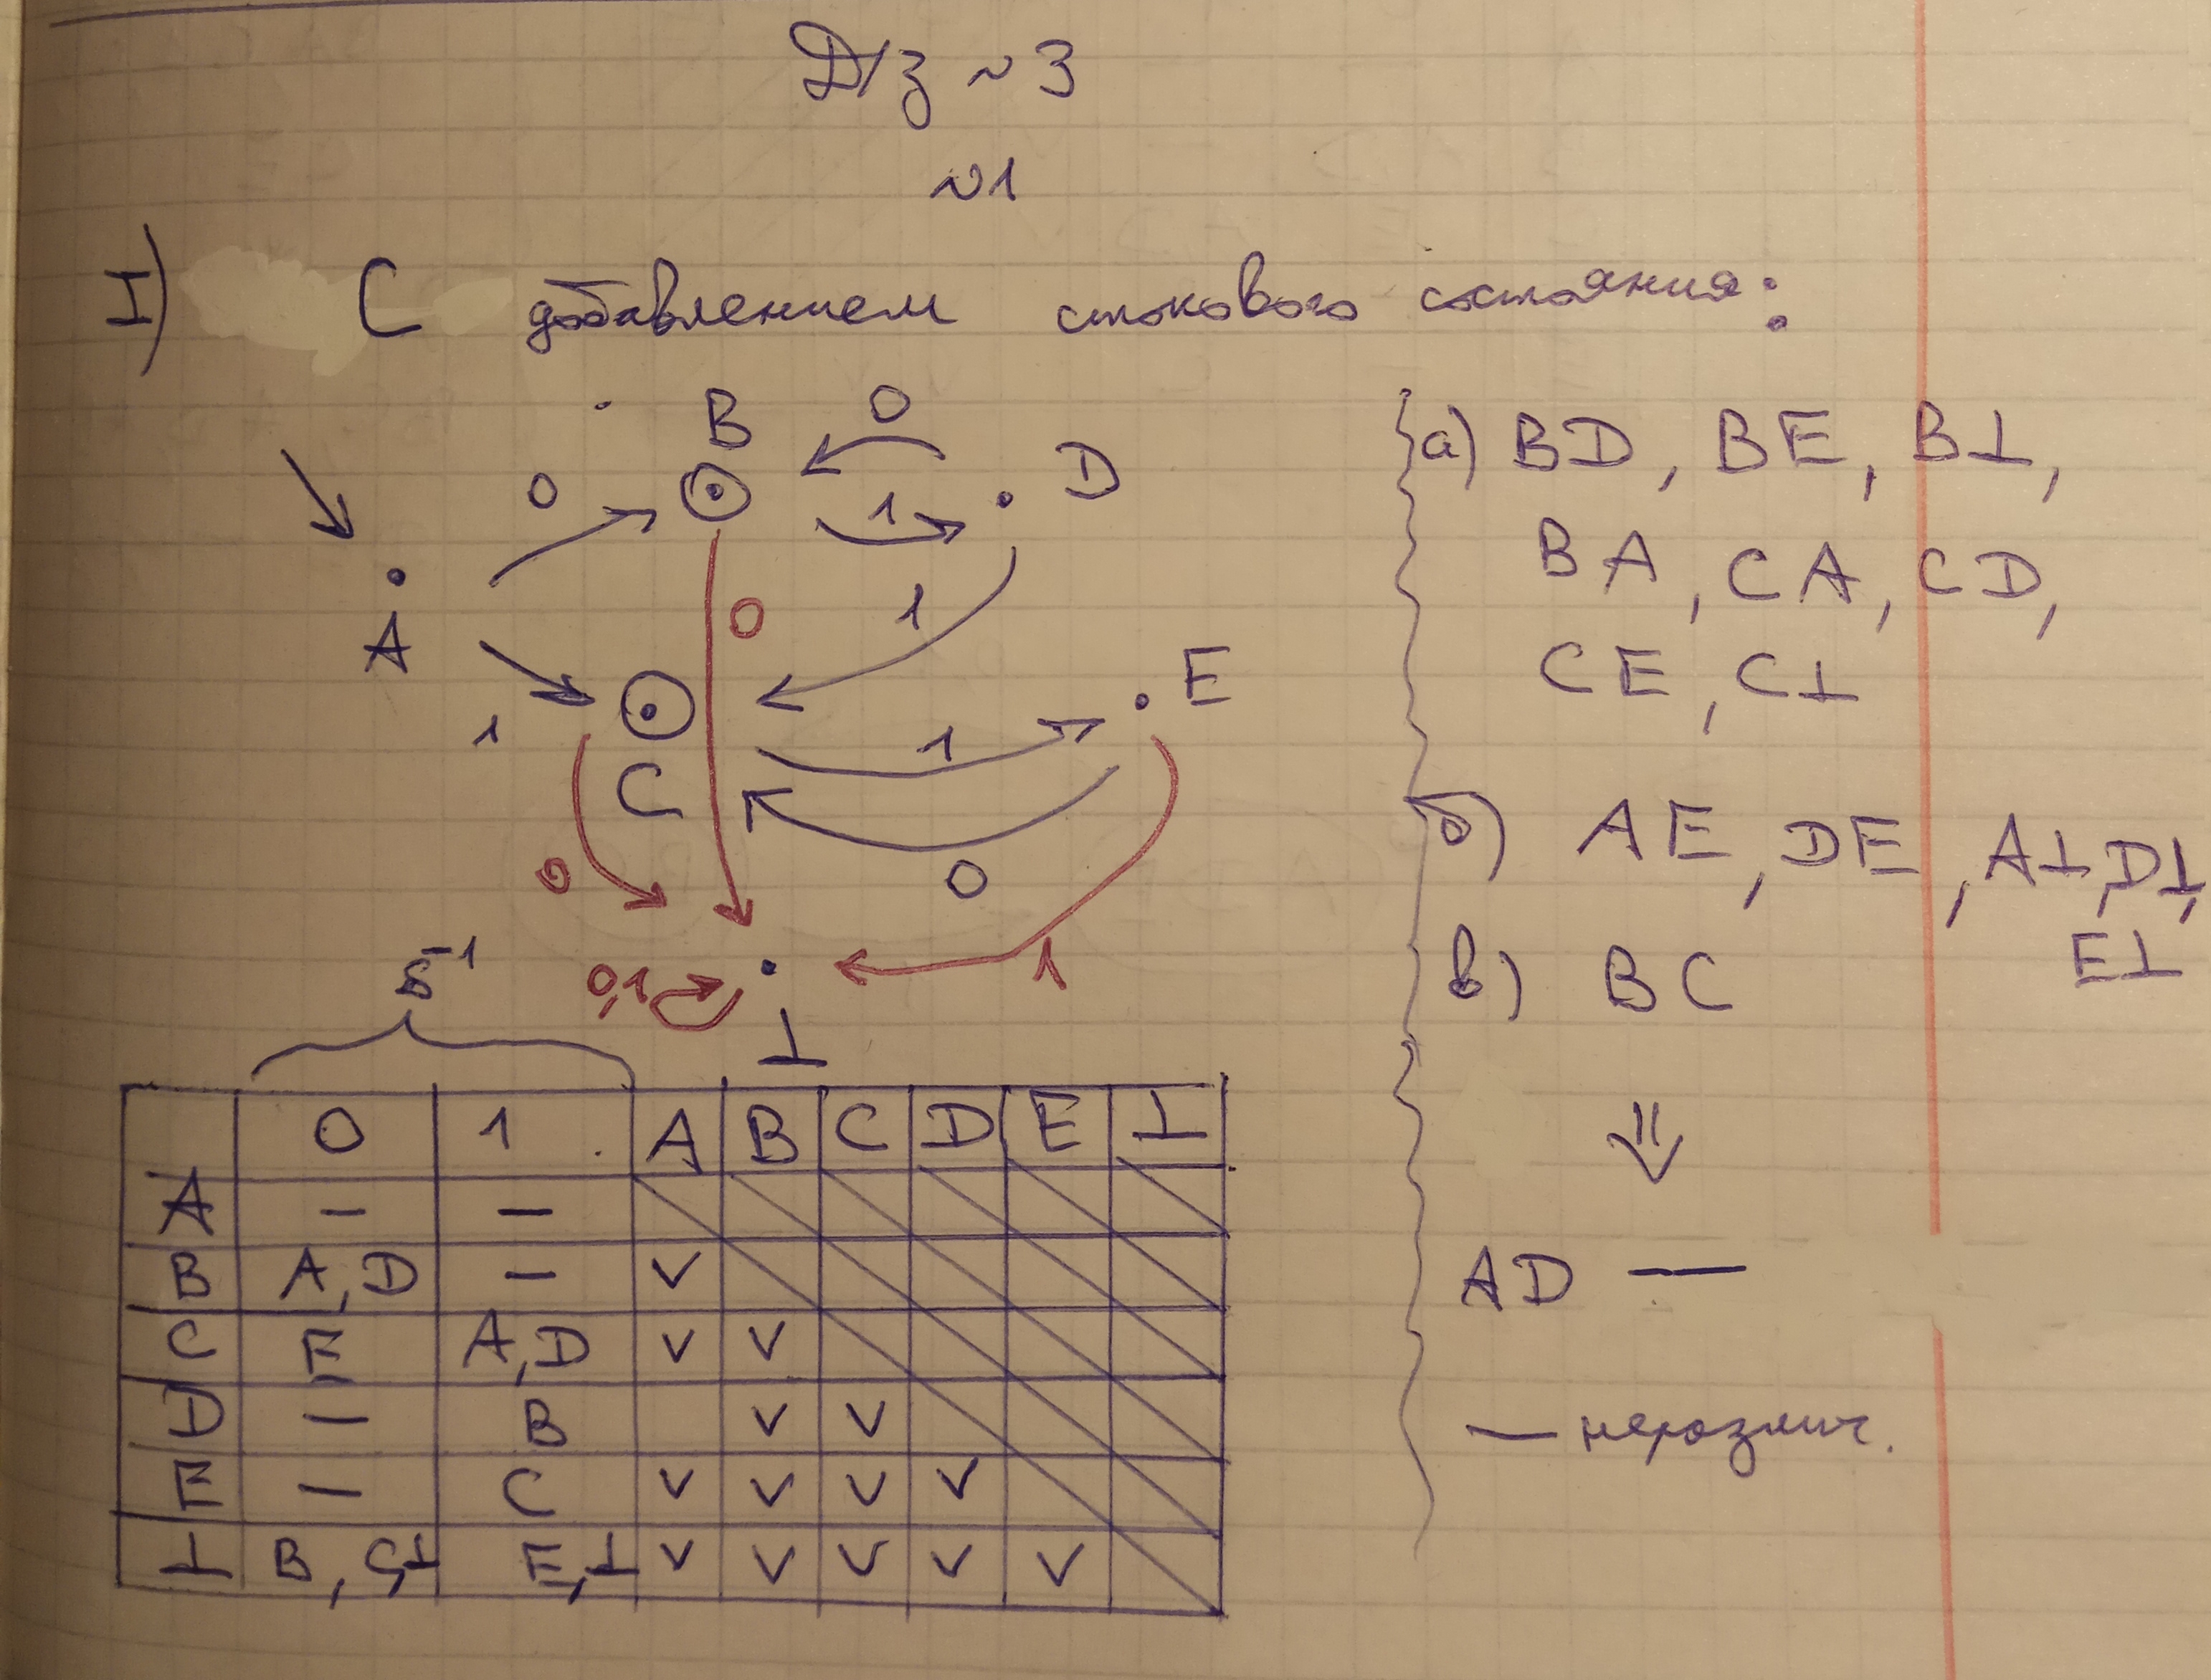 Д/з ~3
~1
I) С добавлением стокового состояния:
B 0 D
0 1
A 0 1
1 C 1 E
0 0
0,1 1
⊥
δ⁻¹
0 1 A B C D E ⊥
A — —
B A,D — v
C E A,D v v
D — B v v
E — C v v v v
⊥ B, C,⊥ E,⊥ v v v v v
а) BD, BE, B⊥,
BA, CA, CD,
CE, C⊥
б) AE, DE, A⊥, D⊥,
E⊥
в) BC
⇓
AD —
— неразлич.